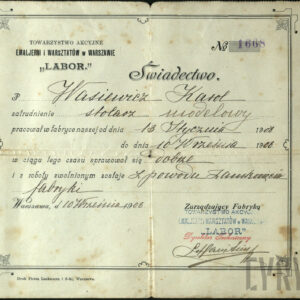 TOWARZYSTWO AKCYJNE
EMALJERNI I WARSZTATÓW w WARSZAWIE
„LABOR.”
№ 1668
Świadectwo.
P. Wasiewicz Karol
zatrudnienie stolarz modelowy
pracował w fabryce naszej od dnia 13 Stycznia 190
do dnia 10 Września 1906
w ciągu tego czasu sprawował się dobrze
i z roboty uwolnionym zostaje z powodu zamknięcia
fabryki
Warszawa, d. 10 Września 1906
Zarządzający Fabryką
TOWARZYSTWO AKCYJNE
EMALJERNI I WARSZTATÓW w WARSZAWIE
"LABOR"
Dyrektor
Druk Piotra Laskauera i S-ki, Warszawa.